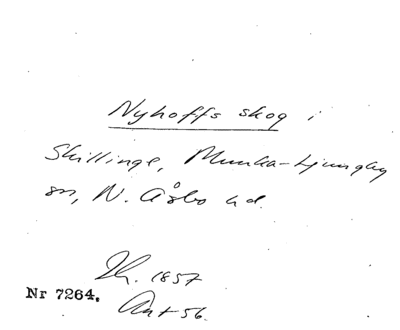 Nyhoffs skog i
Skillinge, Munka-Ljungby
sn, N. Åsbo hd.
Th. 1857
Nr 7264.
Ant 56.